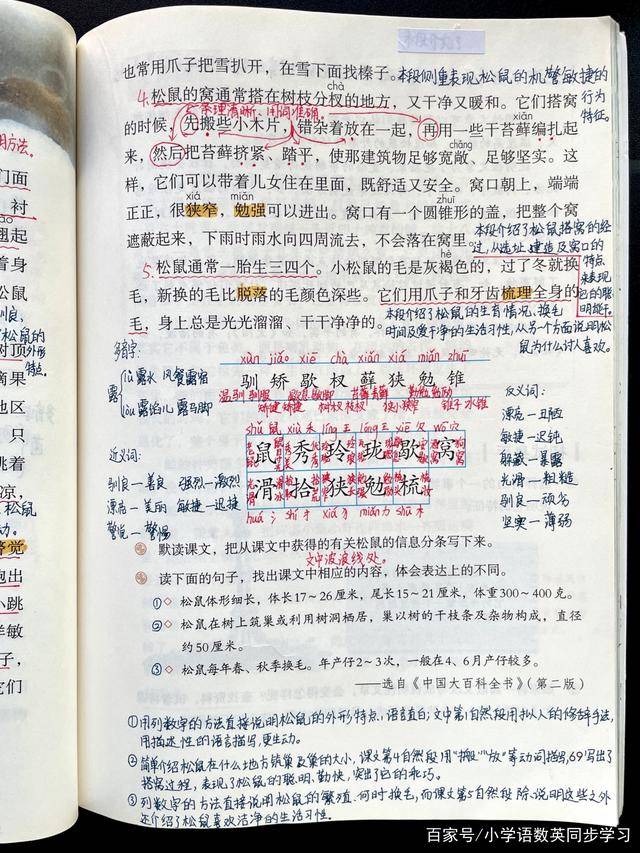 也常用爪子把雪扒开，在雪下面找榛子。本段侧重表现松鼠的机警敏捷的
行为
特征。
chà
4.松鼠的窝通常搭在树枝分杈的地方，又干净又暖和。它们搭窝
条理清晰、用词准确
的时候，先搬些小木片，错杂着放在一起，再用一些干苔藓编扎起
xiǎn
来，然后把苔藓挤紧、踏平，使那建筑物足够宽敞、足够坚实。这
chǎng
样，它们可以带着儿女住在里面，既舒适又安全。窝口朝上，端端
xiá miǎn zhuī
正正，很狭窄，勉强可以进出。窝口有一个圆锥形的盖，把整个窝
遮蔽起来，下雨时雨水向四周流去，不会落在窝里。
本段介绍了松鼠搭窝的经
过，从选址、建造及窝口的
特点
来表现
它的聪
明能干。
hè
5.松鼠通常一胎生三四个。小松鼠的毛是灰褐色的，过了冬就换
毛，新换的毛比脱落的毛颜色深些。它们用爪子和牙齿梳理全身的
毛，身上总是光光溜溜、干干净净的。
本段介绍了松鼠的生育情况、换毛
时间及爱干净的生活习性，从另一个方面说明松
鼠为什么讨人喜欢。
多音字：
露
lù 露水 风餐露宿
lòu 露馅儿 露马脚
近义词：
驯良—善良 强烈—激烈
漂亮—美丽 敏捷—迅捷
警觉—警惕
xùn jiǎo xiē chà xiǎn xiá miǎn zhuī
驯 矫 歇 杈 藓 狭 勉 锥
温驯 驯服
矫健 矫捷
树杈 枝杈
苔藓
狭小 狭窄
锥子
shǔ
鼠 秀 玲 珑 歇 窝
滑 拾 狭 勉 梳
huá shí xiá miǎn shū
反义词：
漂亮—丑陋
敏捷—迟钝
躲藏—暴露
光滑—粗糙
驯良—顽劣
坚实—薄弱
默读课文，把从课文中获得的有关松鼠的信息分条写下来。
文中波浪线处。
读下面的句子，找出课文中相应的内容，体会表达上的不同。
① 松鼠体形细长，体长17～26厘米，尾长15～21厘米，体重300～400克。
② 松鼠在树上筑巢或利用树洞栖居，巢以树的干枝条及杂物构成，直径
约50厘米。
③ 松鼠每年春、秋季换毛。年产仔2～3次，一般在4、6月产仔较多。
——选自《中国大百科全书》（第二版）
①用列数字的方法直接说明松鼠的外形特点，语言直白；文中第1自然段用拟人的修辞手法，
用描述性的语言描写，更生动。
②简单介绍松鼠在什么地方筑巢及巢的大小，课文第4自然段用“搬”“放”等动词描写
搭窝过程，表现了松鼠的聪明、勤快，突出了它的乖巧。
③列数字的方法直接说明松鼠的繁殖、何时换毛，而课文第5自然段除说明这些之外
还介绍了松鼠喜欢洁净的生活习性。
百家号/小学语数英同步学习